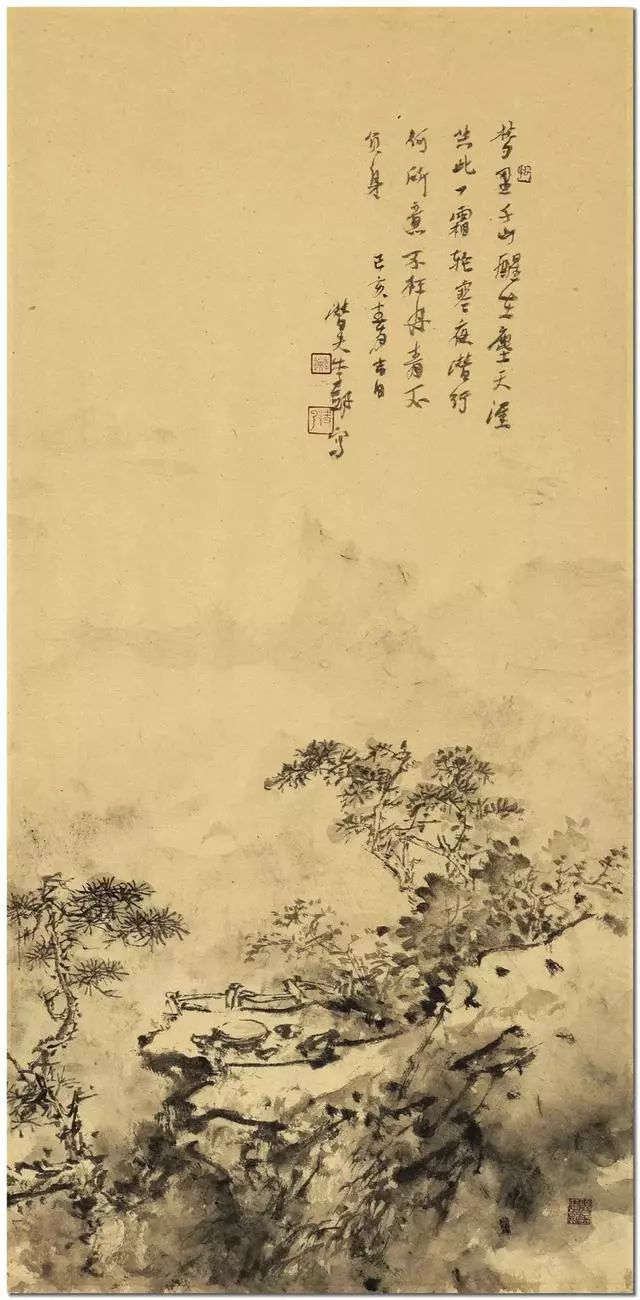 梦里千山醒在塵天涯
共此一霜轮寒夜潜行
何所意不枉丹青不
负身
己亥春月吉日
潜夫李写